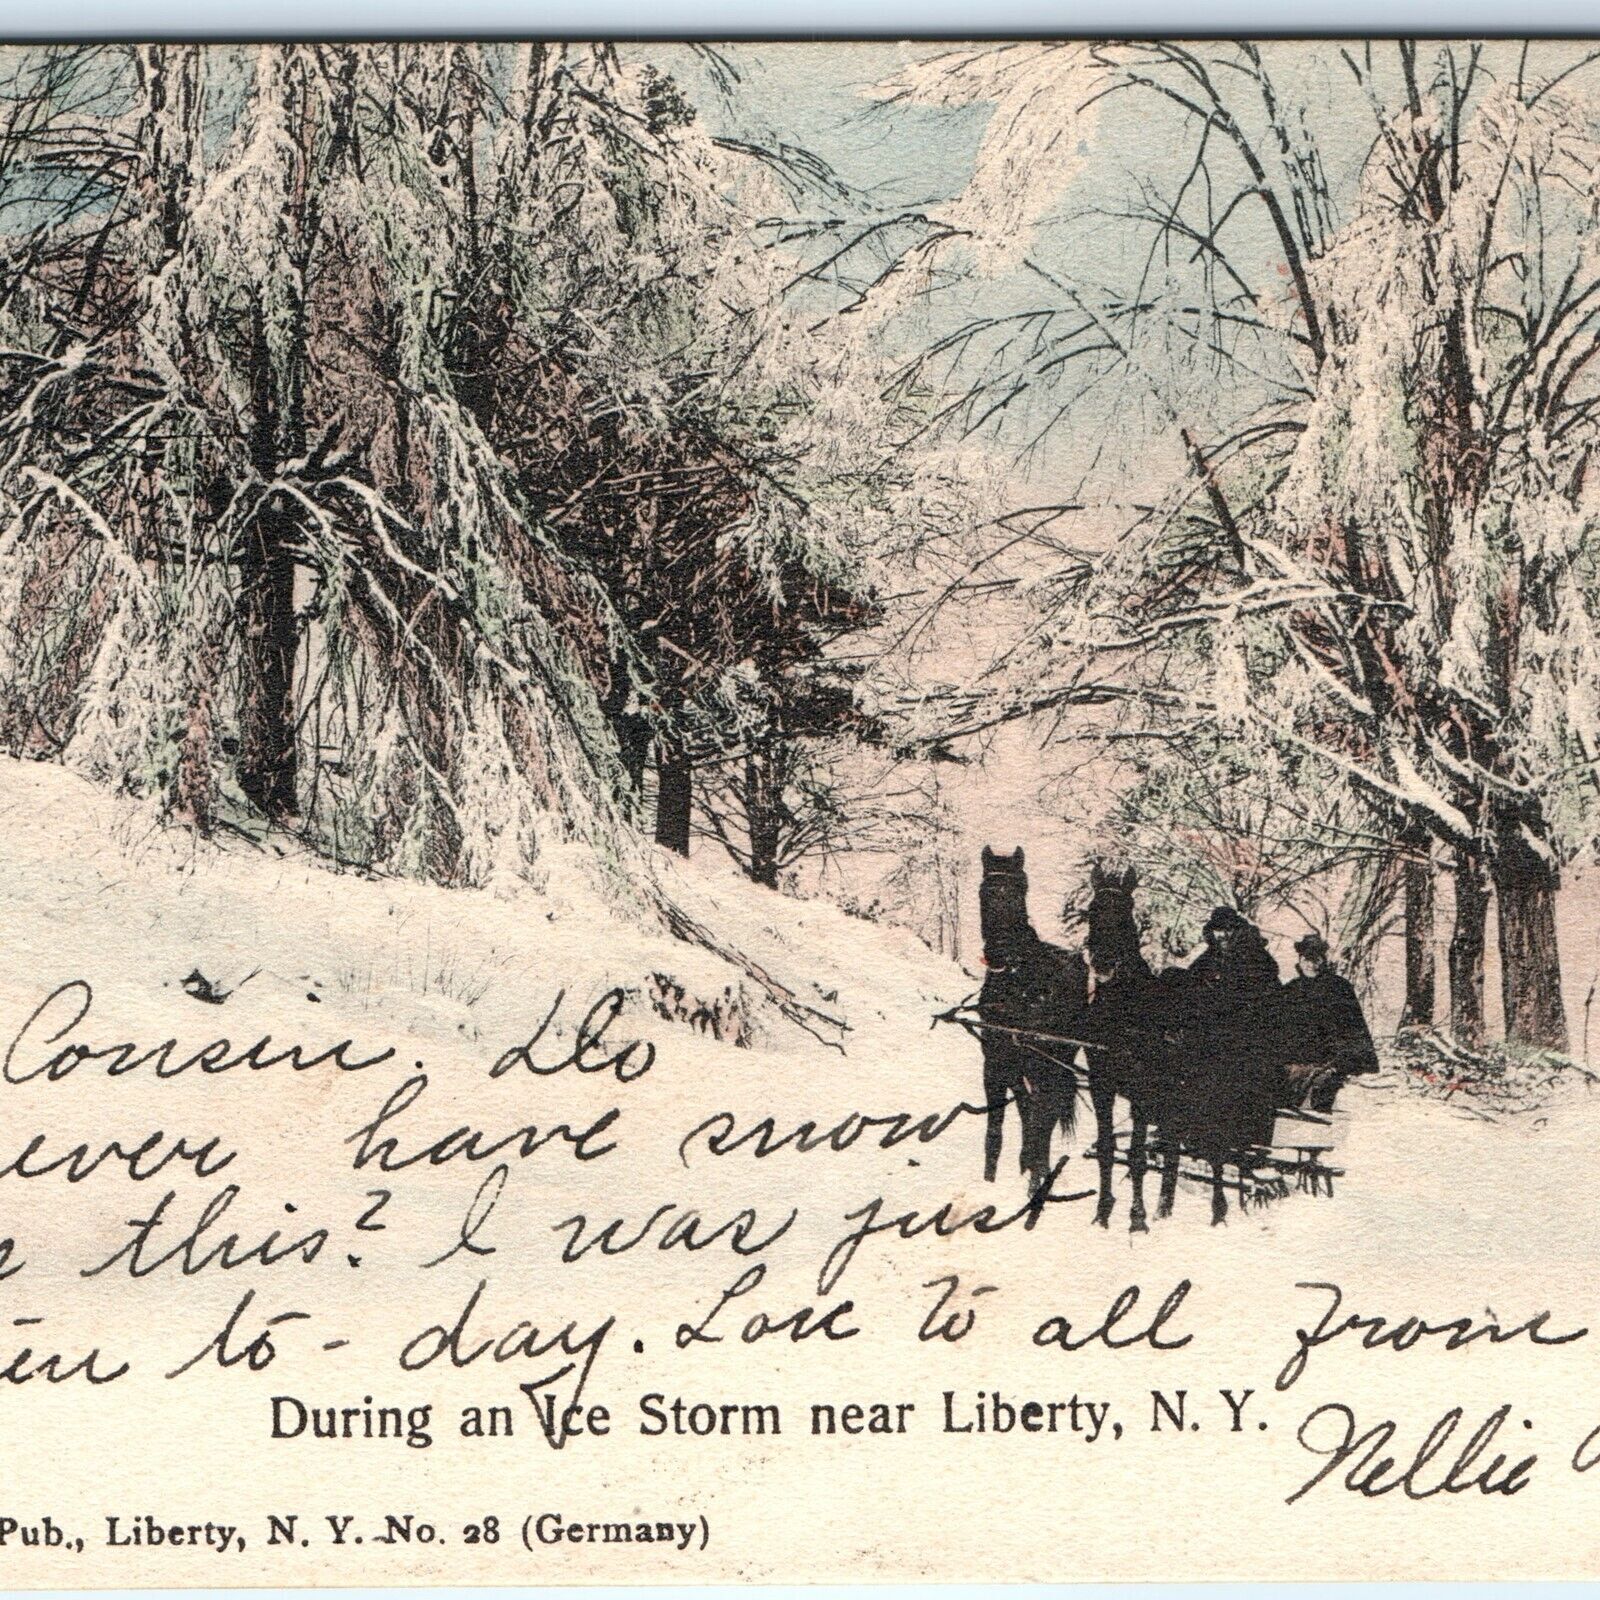 Cousin. Do
ever have snow
this? I was just
to-day. Love to all from
During an Ice Storm near Liberty, N. Y.
Nellie
Pub., Liberty, N. Y. No. 28 (Germany)